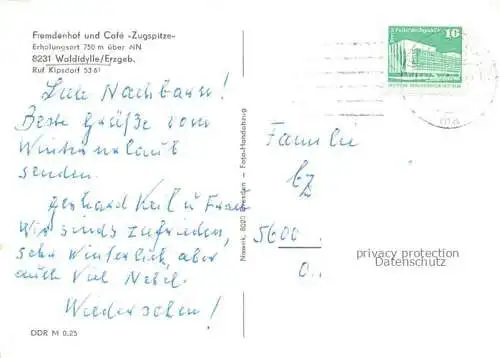 Fremdenhof und Café -Zugspitze-
Erholungsort 750 m über NN
8231 Waldidylle/Erzgeb.
Ruf Kipsdorf 5361
Liebe Nachbarn!
Beste Grüße vom
Winterurlaub
senden.
Gerhard Keil u Frau
Wir sind zufrieden,
sehr Winterlich, aber
auch viel Nebel.
Wiedersehen!
DDR M 0,25
Nixwik, 8020 Dresden - Foto-Handabzug
10
Familie
5600
privacy protection
Datenschutz